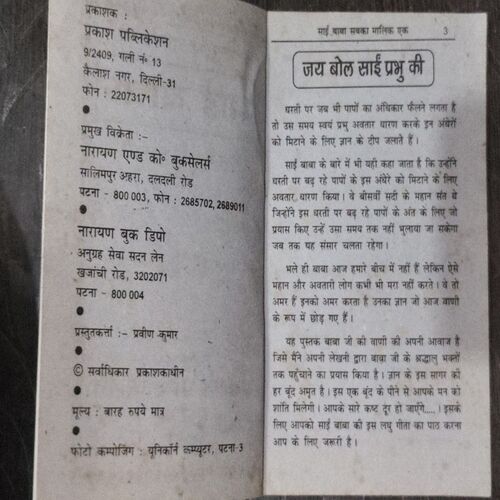 प्रकाशक :
प्रकाश पब्लिकेशन
9/2409, गली नं० 13
कैलाश नगर, दिल्ली-31
फोन : 22073171
प्रमुख विक्रेता :–
नारायण एण्ड को० बुकसेलर्स
सालिमपुर अहरा, दलदली रोड
पटना - 800 003, फोन : 2685702, 2689011
नारायण बुक डिपो
अनुग्रह सेवा सदन लेन
खजांची रोड, 3202071
पटना - 800 004
प्रस्तुतकर्त्ता :– प्रवीण कुमार
© सर्वाधिकार प्रकाशकाधीन
मूल्य : बारह रुपये मात्र
फोटो कम्पोजिंग : यूनिकॉर्न कम्प्यूटर, पटना-3
साईं बाबा सबका मालिक एक 3
जय बोल साईं प्रभु की
धरती पर जब भी पापों का अंधिकार फैलने लगता है
तो उस समय स्वयं प्रभु अवतार धारण करके इन अंधेरों
को मिटाने के लिए ज्ञान के दीप जलाते हैं।
साईं बाबा के बारे में भी यही कहा जाता है कि उन्होंने
धरती पर बढ़ रहे पापों के इस अंधेरे को मिटाने के लिए
अवतार धारण किया। वे बीसवीं सदी के महान संत थे
जिन्होंने इस धरती पर बढ़ रहे पापों के अंत के लिए जो
प्रयास किए उन्हें उस समय तक नहीं भुलाया जा सकेगा
जब तक यह संसार चलता रहेगा।
भले ही बाबा आज हमारे बीच में नहीं हैं लेकिन ऐसे
महान और अवतारी लोग कभी भी मरा नहीं करते। वे तो
अमर हैं इनको अमर करता है उनका ज्ञान जो आज वाणी
के रूप में छोड़ गए हैं।
यह पुस्तक बाबा जी की वाणी की अपनी आवाज है
जिसे मैंने अपनी लेखनी द्वारा बाबा जी के श्रद्धालु भक्तों
तक पहुंचाने का प्रयास किया है। ज्ञान के इस सागर की
हर बूंद अमृत है। इस एक बूंद के पीने से आपके मन को
शांति मिलेगी। आपके सारे कष्ट दूर हो जाएँगे.....। इसके
लिए आपको साईं बाबा की इस लघु गीता का पाठ करना
आप के लिए जरूरी है।